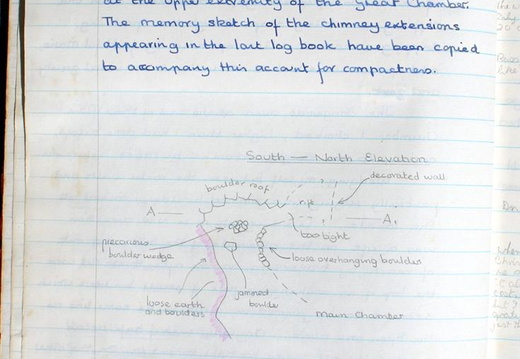 at the upper extremity of the Great Chamber.
The memory sketch of the chimney extensions
appearing in the last log book have been copied
to accompany this account for compactness.
South — North Elevation
decorated wall
boulder roof
rift
A
A,
too tight
precarious
boulder wedge
loose overhanging boulders
loose earth
and boulders
jammed
boulder
main chamber